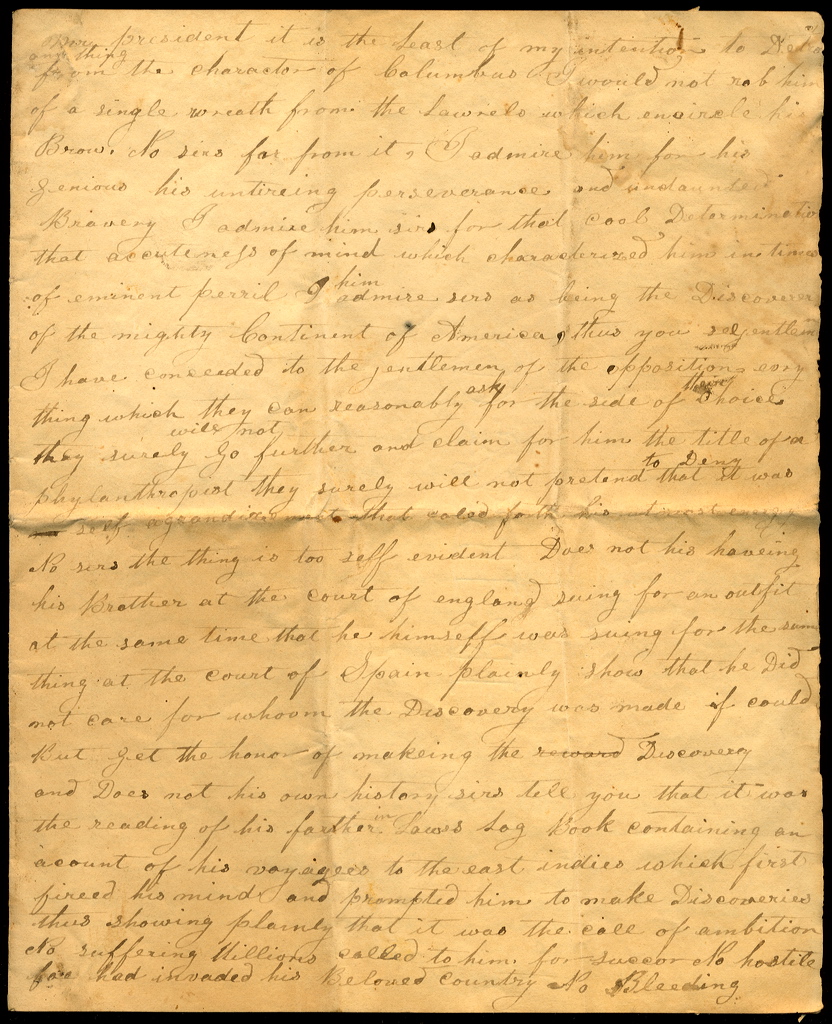 president it is the Least of my intention to
any thing
from the charactor of Columbus I would not rob him
of a single wreath from the Lawrels which encircle his
Brow. No sirs far from it, I admire him for his
genious his untireing perseverance and undaunted
Bravery I admire him sirs for that cool Determinatio
that accuteness of mind which characterized him in times
of eminent perril I admire him sirs as being the Discoverer
of the mighty Continent of America, thus you see gentlem
I have conceeded to the gentlemen of the opposition evry
thing which they can reasonably ask for the side of their choice
they surely will not go further and claim for him the title of a
phylanthropist they surely will not pretend to Deny that it was
self agrandizement that caled forth his utmost energy
No sirs the thing is too self evident Does not his haveing
his Brother at the court of england suing for an outfit
at the same time that he himself was suing for the same
thing at the court of Spain plainly show that he Did
not care for whoom the Discovery was made if could
But get the honor of makeing the reward Discovery
and Does not his own history sirs tell you that it was
the reading of his farther in Laws Log Book containing an
acount of his voyagees to the east indies which first
fireed his mind and prompted him to make Discoveries
thus showing plainly that it was the call of ambition
No suffering Millions called to him for succor No hostile
foe had invaded his Beloved country No Bleeding